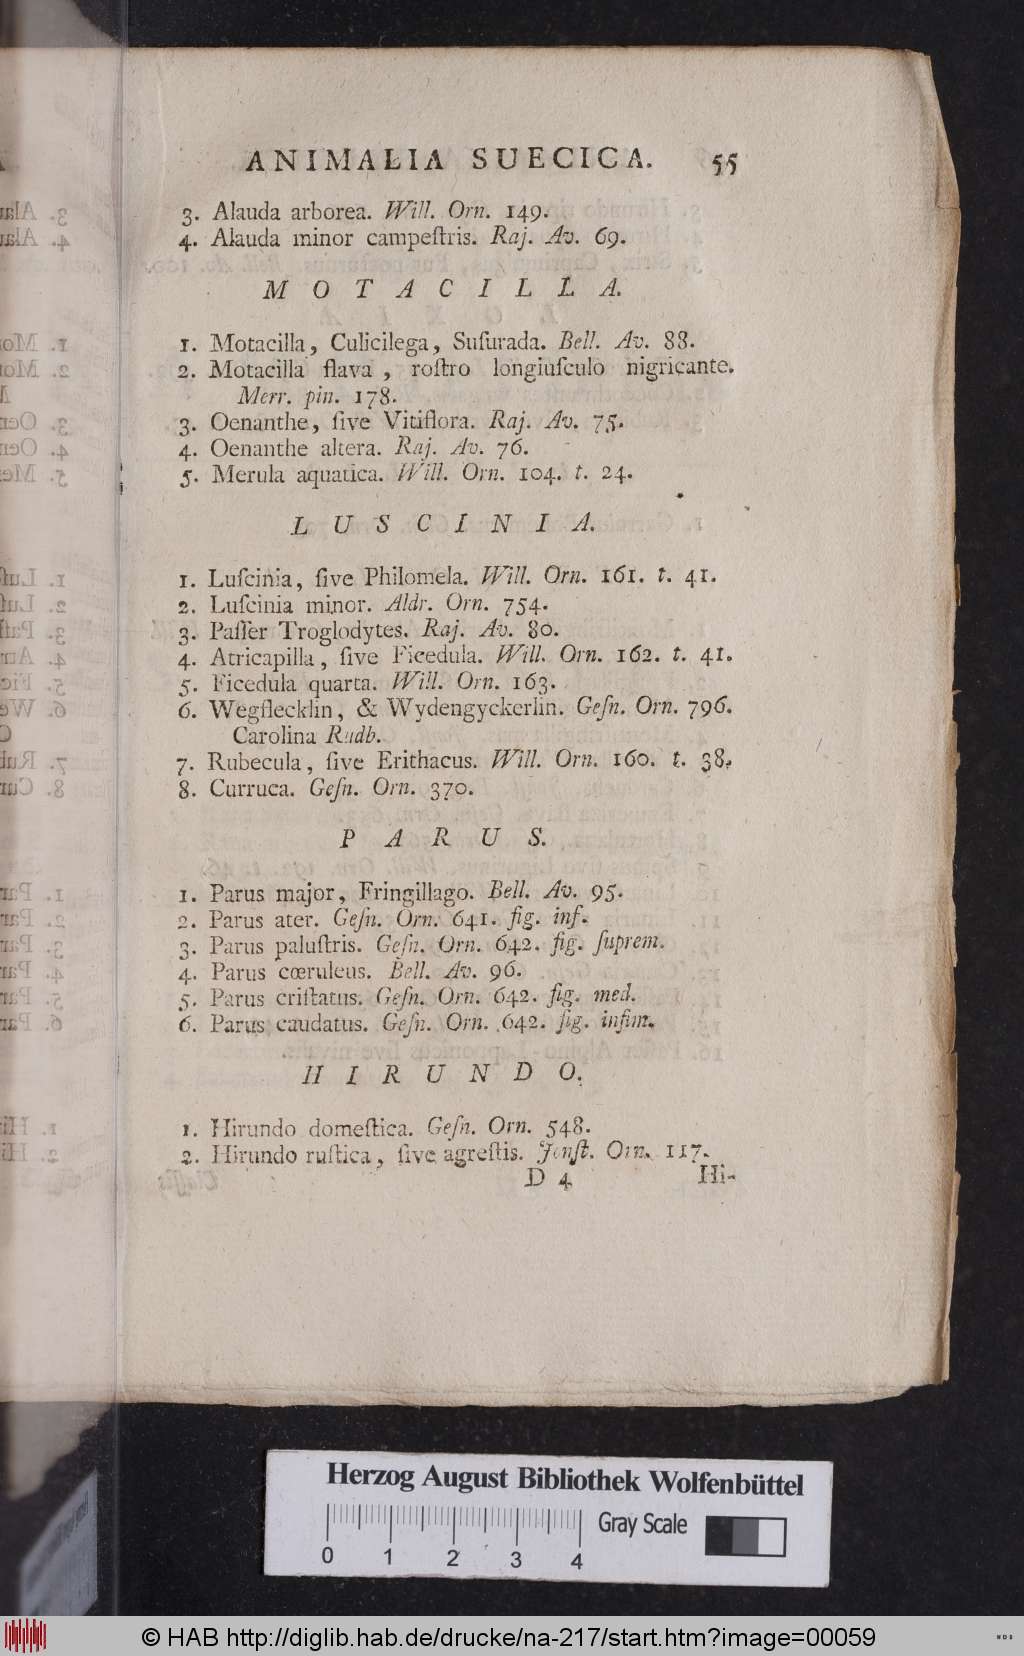 ANIMALIA SUECICA. 55
3. Alauda arborea. Will. Orn. 149.
4. Alauda minor campeſtris. Raj. Av. 69.
MOTACILLA.
1. Motacilla, Culicilega, Suſurada. Bell. Av. 88.
2. Motacilla flava, roſtro longiuſculo nigricante.
Merr. pin. 178.
3. Oenanthe, ſive Vitiflora. Raj. Av. 75.
4. Oenanthe altera. Raj. Av. 76.
5. Merula aquatica. Will. Orn. 104. t. 24.
LUSCINIA.
1. Luſcinia, ſive Philomela. Will. Orn. 161. t. 41.
2. Luſcinia minor. Aldr. Orn. 754.
3. Paſſer Troglodytes. Raj. Av. 80.
4. Atricapilla, ſive Ficedula. Will. Orn. 162. t. 41.
5. Ficedula quarta. Will. Orn. 163.
6. Wegflecklin, & Wydengyckerlin. Geſn. Orn. 796.
Carolina Rudb.
7. Rubecula, ſive Erithacus. Will. Orn. 160. t. 38.
8. Curruca. Geſn. Orn. 370.
PARUS.
1. Parus major, Fringillago. Bell. Av. 95.
2. Parus ater. Geſn. Orn. 641. fig. inf.
3. Parus paluſtris. Geſn. Orn. 642. fig. ſuprem.
4. Parus cœruleus. Bell. Av. 96.
5. Parus criſtatus. Geſn. Orn. 642. fig. med.
6. Parus caudatus. Geſn. Orn. 642. fig. infim.
HIRUNDO.
1. Hirundo domeſtica. Geſn. Orn. 548.
2. Hirundo ruſtica, ſive agreſtis. Jonſt. Orn. 117.
D 4 Hi-
Herzog August Bibliothek Wolfenbüttel
Gray Scale
0 1 2 3 4
© HAB http://diglib.hab.de/drucke/na-217/start.htm?image=00059